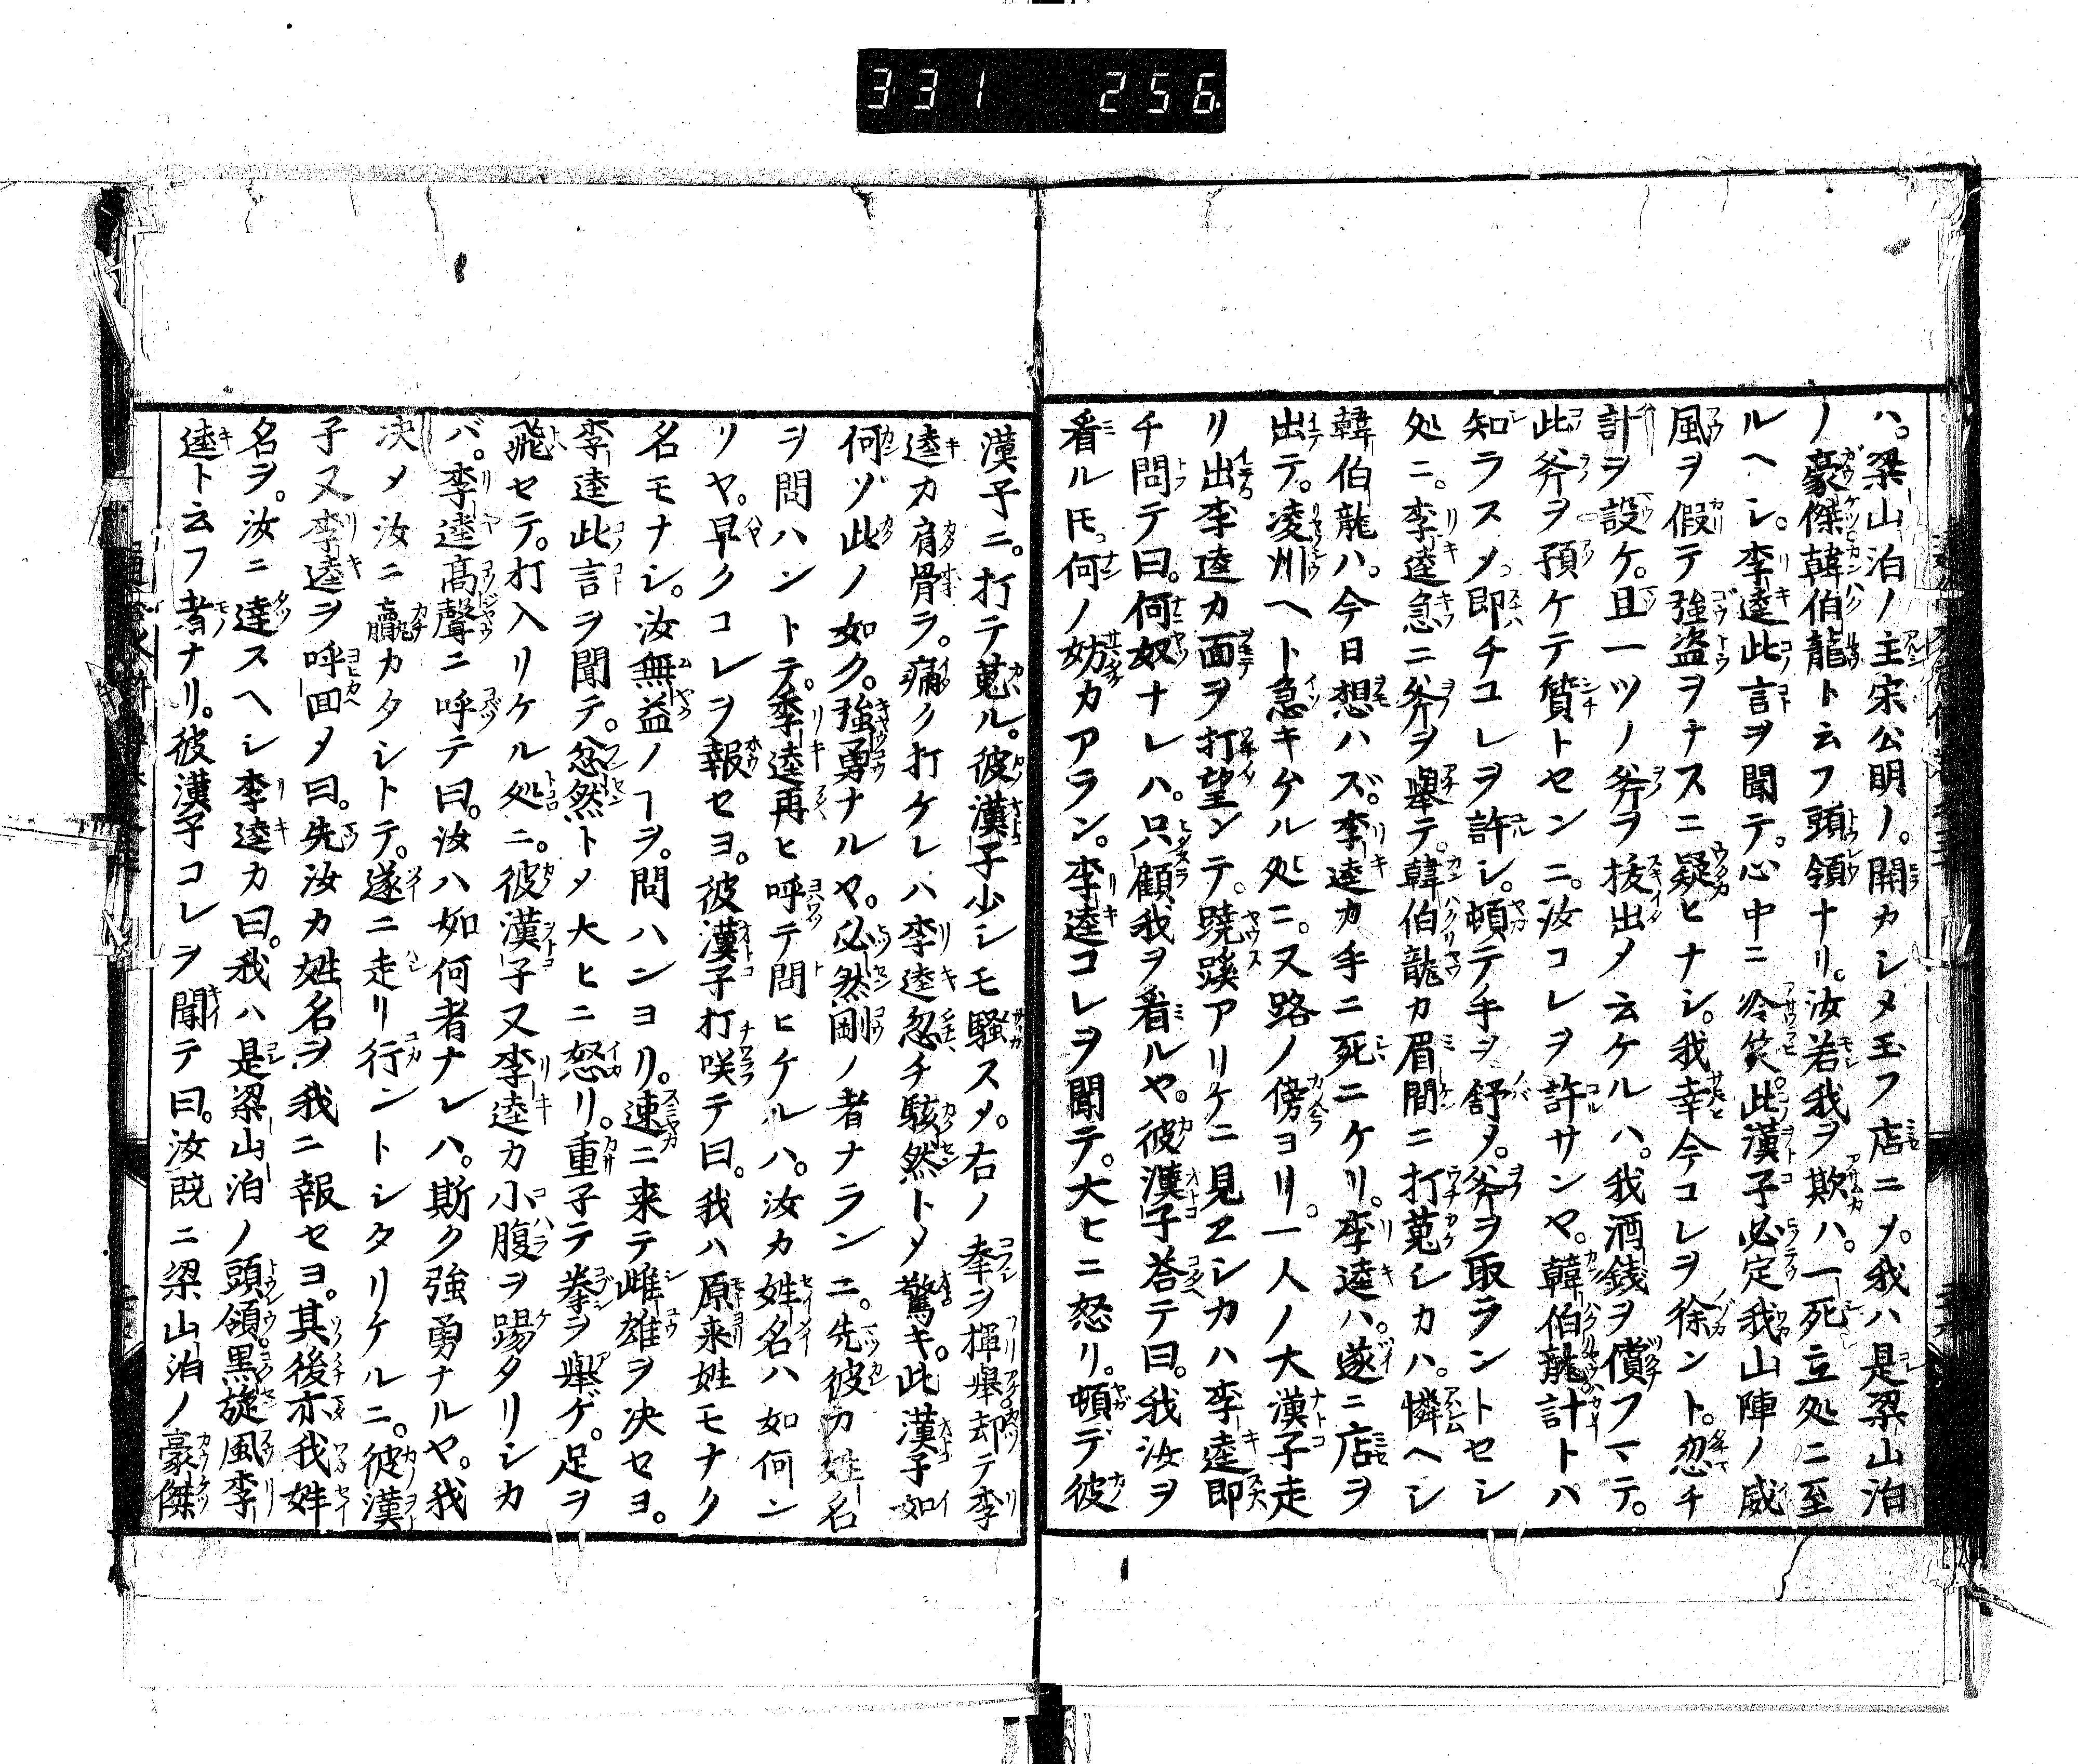 331 256
ハ。梁山泊ノ主宋公明ノ。開カシメ玉フ店ニメ。我ハ是梁山泊
ノ豪傑韓伯龍ト云フ頭領ナリ。汝若我ヲ欺ハ。一死立処ニ至
ルヘシ。李逵此言ヲ聞テ。心中ニ冷笑。此漢子必定我山陣ノ威
風ヲ假テ強盗ヲナスニ疑ヒナシ。我幸今コレヲ徐ント。忽チ
計ヲ設ケ。且一ツノ斧ヲ抜出メ云ケルハ。我酒銭ヲ償フマテ。
此斧ヲ預ケテ質トセンニ。汝コレヲ許サンヤ。韓伯龍計トハ
知ラスメ。即チコレヲ許シ。頓テ手ヲ舒メ。斧ヲ取ラントセシ
処ニ。李逵急ニ斧ヲ舉テ。韓伯龍カ眉間ニ打蒐シカハ。憐ヘシ
韓伯龍ハ。今日想ハズ。李逵カ手ニ死ニケリ。李逵ハ。遂ニ店ヲ
出テ。凌州ヘト急キケル処ニ。又路ノ傍ヨリ。一人ノ大漢子走
リ出李逵カ面ヲ打望ンテ。蹺蹊アリケニ見ヱシカハ李逵即
チ問テ曰。何奴ナレハ。只顧我ヲ看ルヤ。彼漢子荅テ曰。我汝ヲ
看ルトモ。何ノ妨カアラン。李逵コレヲ聞テ。大ヒニ怒リ。頓デ彼
漢子ニ。打テ蒐ル。彼漢子少シモ騒スメ。右ノ拳ヲ揮舉却テ李
逵カ肩骨ヲ。痛ク打ケレハ李逵忽チ駭然トメ驚キ。此漢子如
何ゾ此ノ如ク。強勇ナルヤ。必然剛ノ者ナランニ。先彼カ姓名
ヲ問ハントテ。李逵再ヒ呼テ問ヒケルハ。汝カ姓名ハ如何ン
リヤ。早クコレヲ報セヨ。彼漢子打咲テ曰。我ハ原来姓モナク
名モナシ。汝無益ノヿヲ。問ハンヨリ。速ニ来テ雌雄ヲ决セヨ。
李逵此言ヲ聞テ。忿然トメ大ヒニ怒リ。重子テ拳ヲ舉ゲ。足ヲ
飛セテ。打入リケル処ニ。彼漢子又李逵カ小腹ヲ踢タリシカ
バ。李逵髙聲ニ呼テ曰。汝ハ如何者ナレハ。斯ク強勇ナルヤ。我
决メ汝ニ贏カタシトテ。遂ニ走リ行ントシタリケルニ。彼漢
子又李逵ヲ呼回メ曰。先汝カ姓名ヲ我ニ報セヨ。其後亦我姓
名ヲ。汝ニ達スヘシ李逵カ曰。我ハ是梁山泊ノ頭領。黒旋風李
逵ト云フ者ナリ。彼漢子コレヲ聞テ曰。汝既ニ梁山泊ノ豪傑